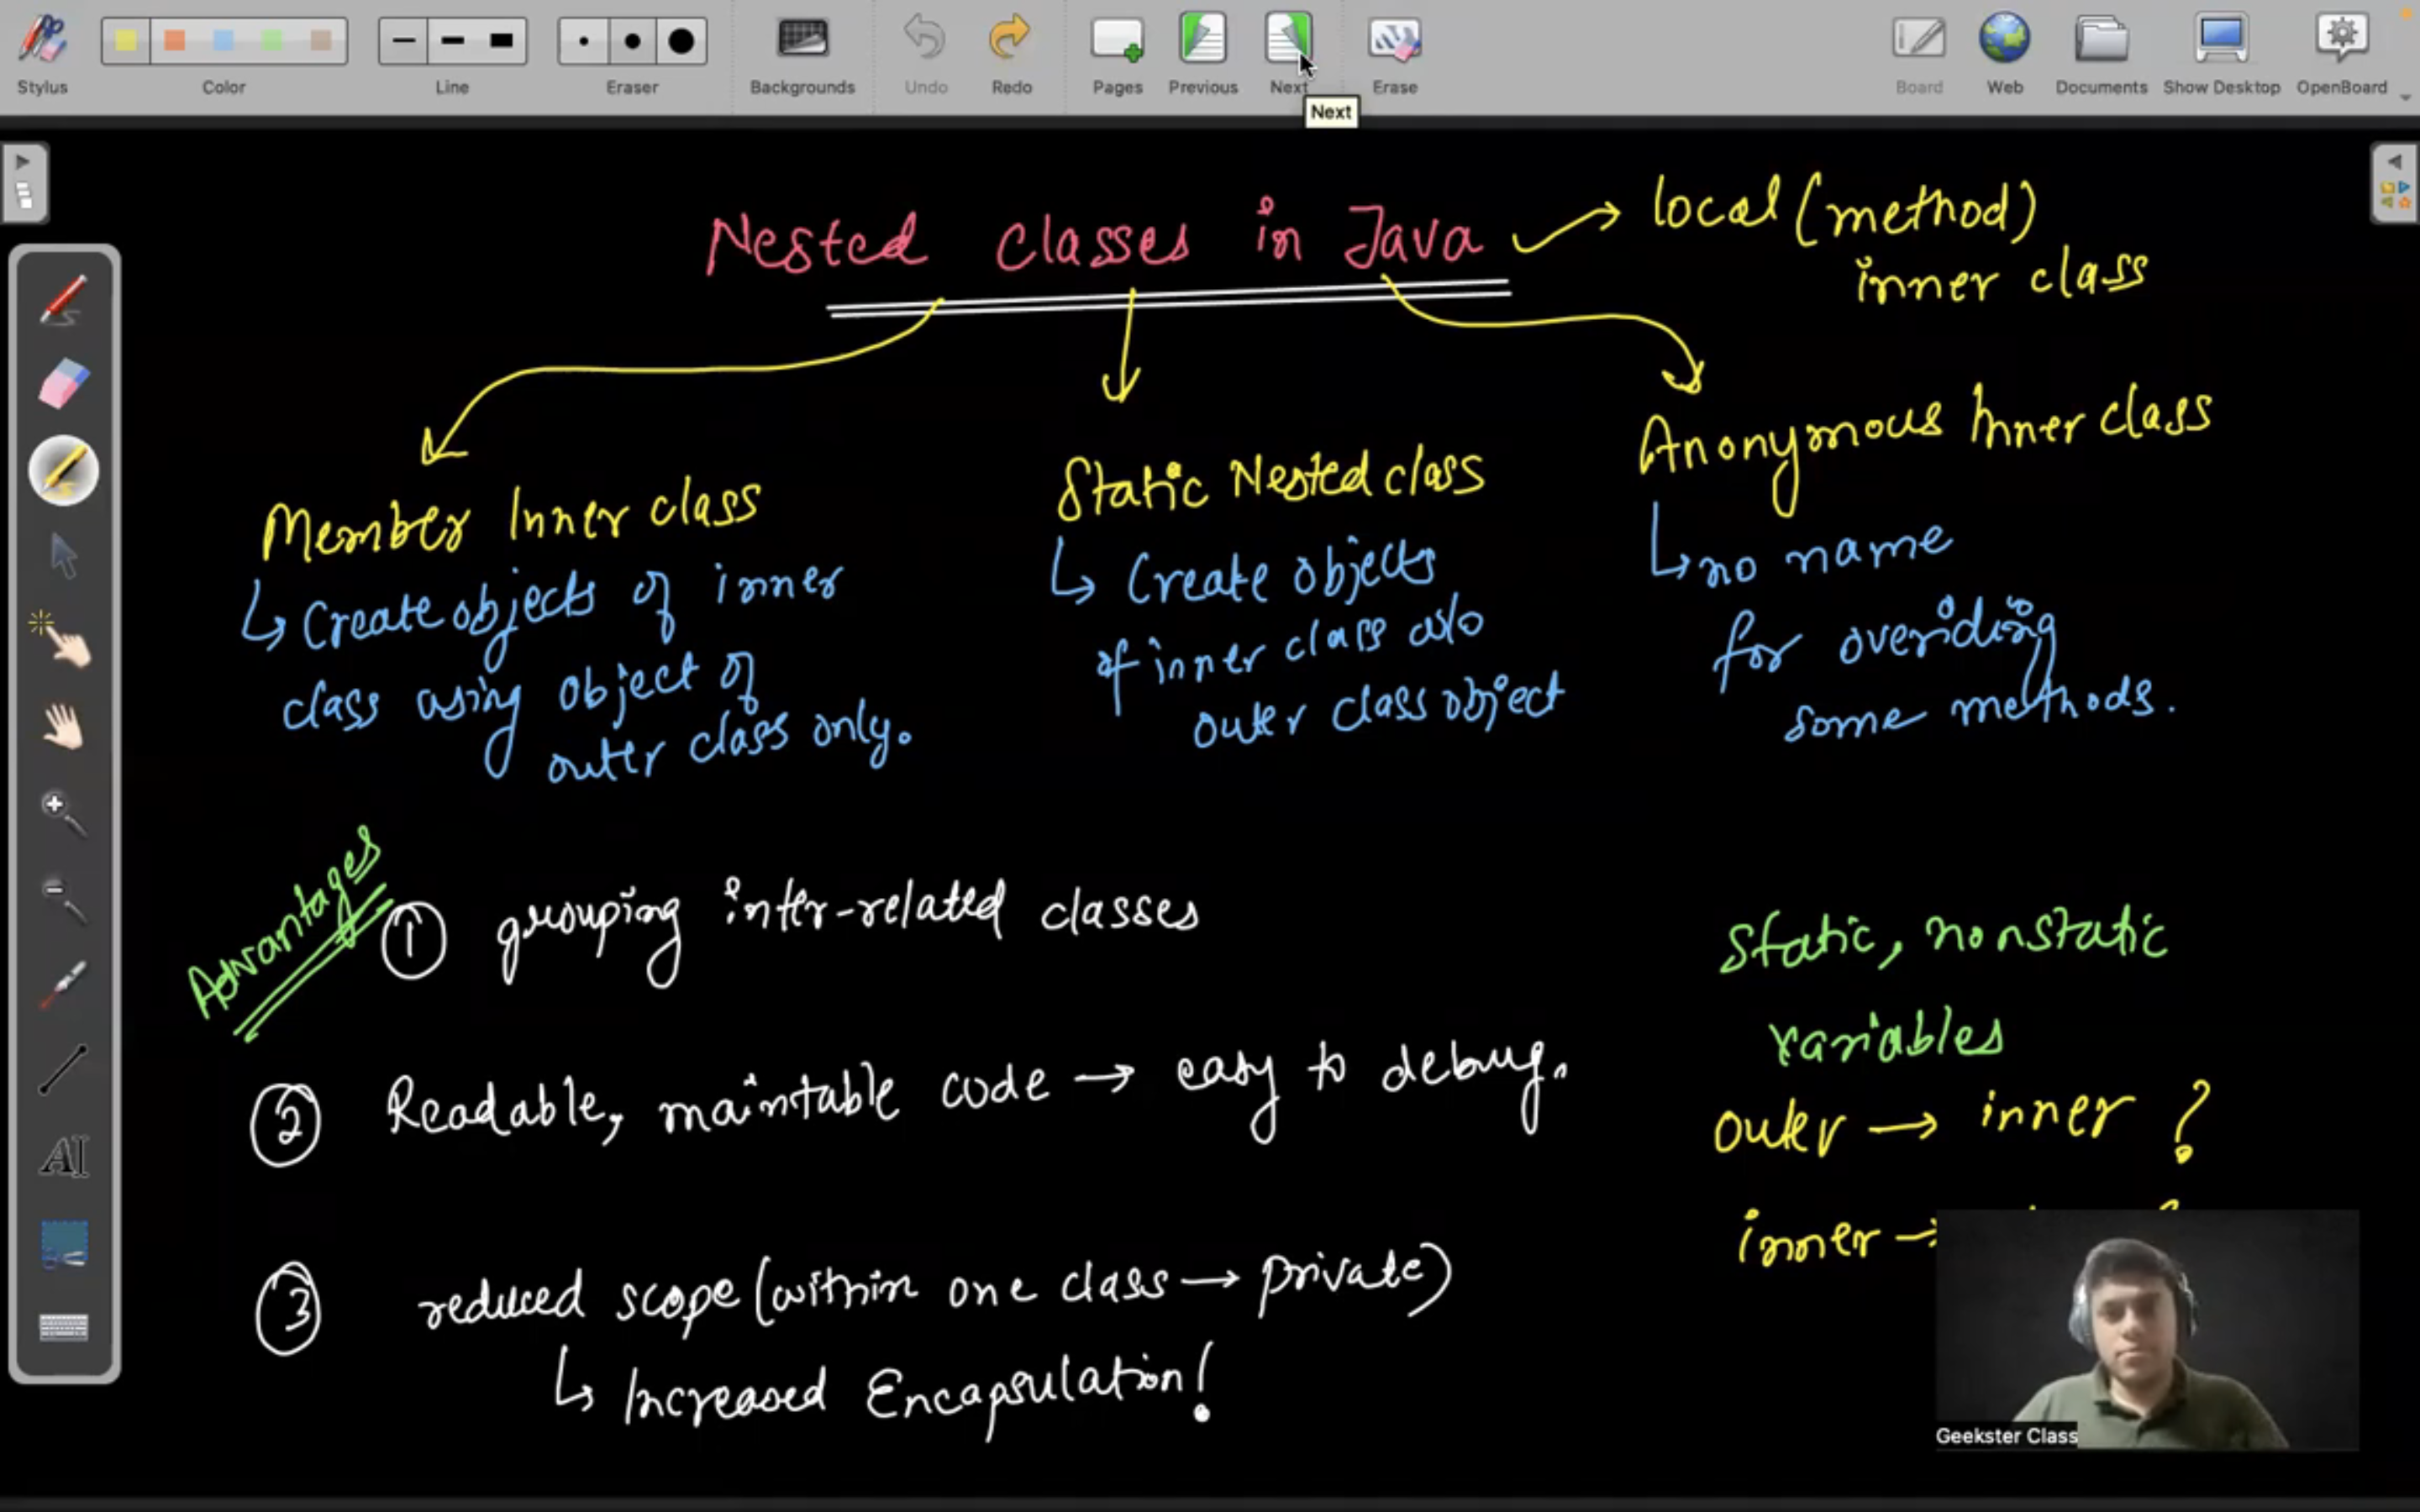 Stylus
Color
Line
Eraser
Backgrounds
Undo
Redo
Pages
Previous
Next
Erase
Board
Web
Documents
Show Desktop
OpenBoard
Next
Nested Classes in Java
local (method)
inner class
Member Inner class
↳ Create objects of inner
class using object of
outer class only.
Static Nested class
↳ Create objects
of inner class w/o
outer class object
Anonymous Inner class
↳ no name
for overiding
some methods.
Advantages
① grouping inter-related classes
② Readable, maintable code → easy to debug.
③ reduced scope (within one class → private)
↳ Increased Encapsulation!
Static, nonstatic
variables
outer → inner ?
inner →
AI
Geekster Class